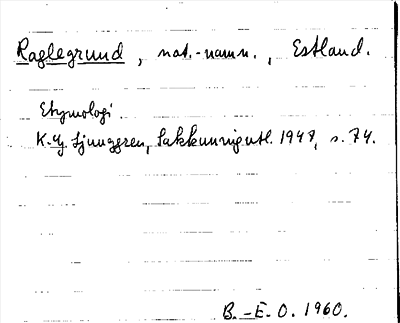 Raglegrund, nat.-namn., Estland.
Etymologi.
K.-G. Ljunggren, Sakkunnigutl. 1947, s. 74.
B.-E. O. 1960.